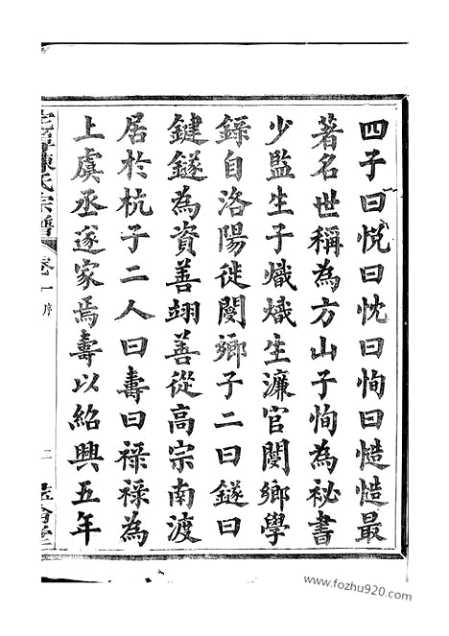 四子曰悅曰忱曰恂曰慥慥最
著名世稱為方山子恂為祕書
少監生子熾熾生濂官閿鄉學
錄自洛陽徙閿鄉子二曰鐩曰
鍵鐩為資善翊善從高宗南渡
居於杭子二人曰壽曰禄禄為
上虞丞遂家焉壽以紹興五年
陳氏宗譜 卷一 序 二
www.fozhu920.com